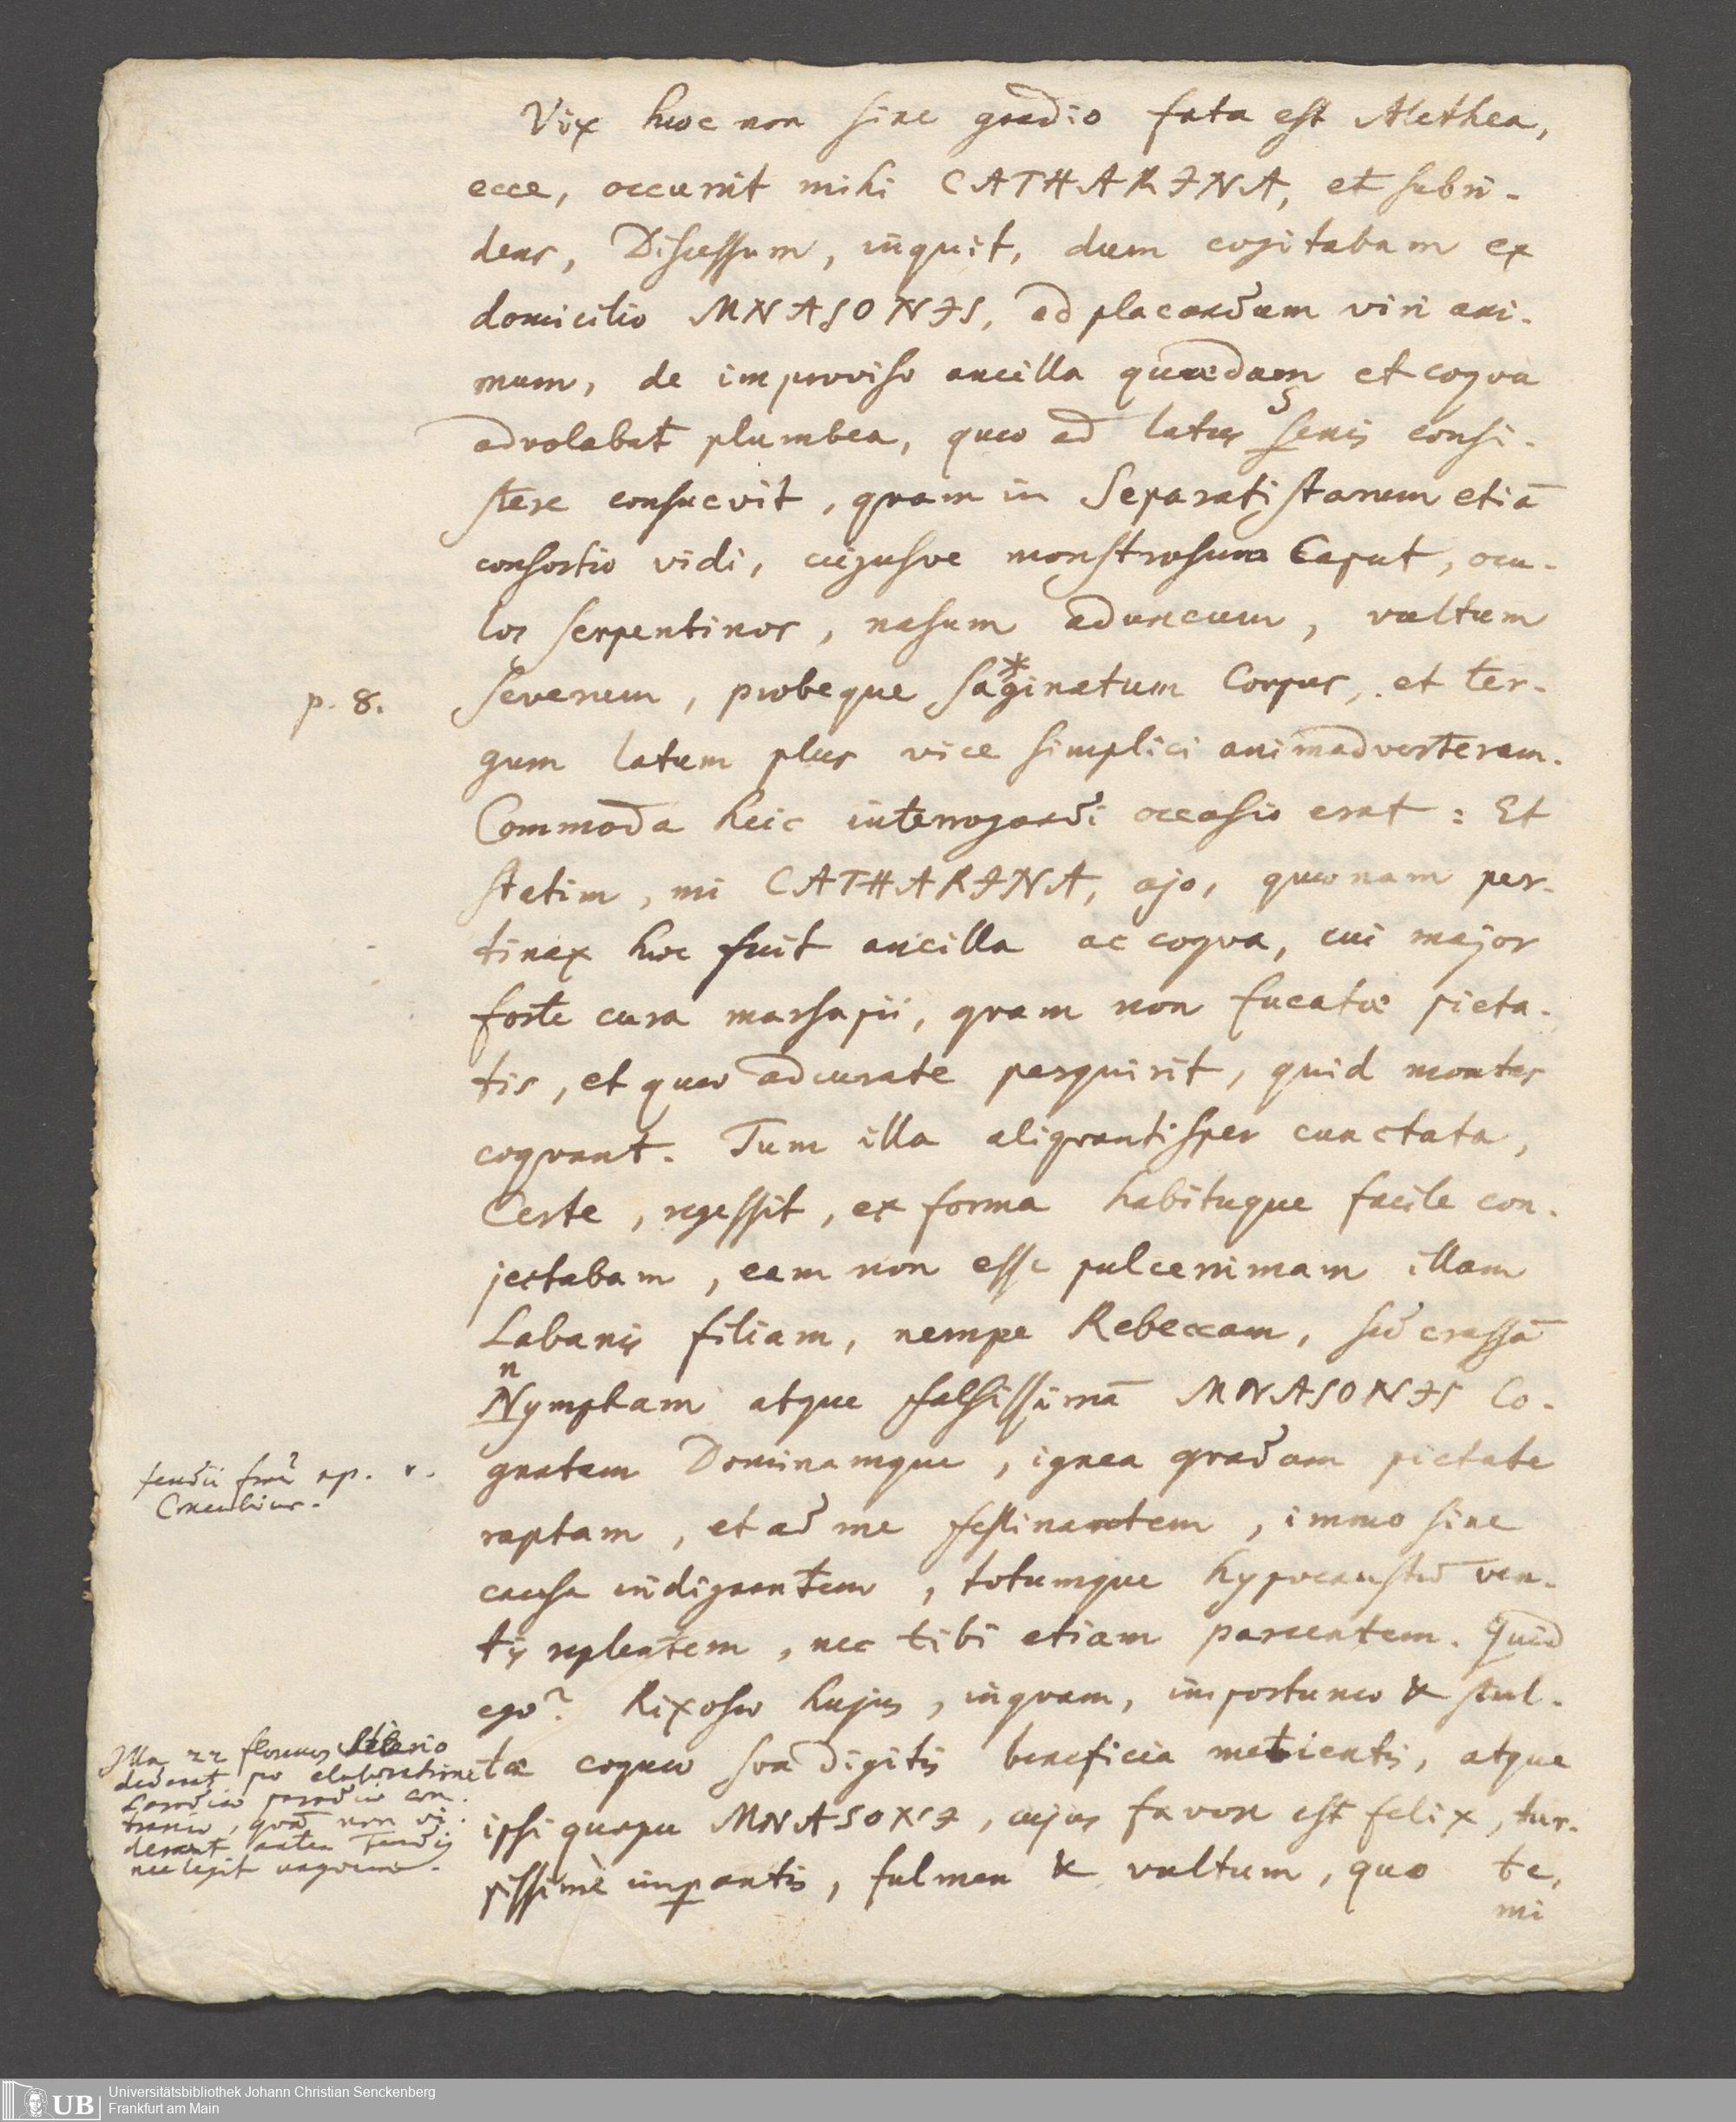 Vix hæc non sine gaudio fata est Alethea,
ecce, occurrit mihi CATHARINA, et subri-
dens, Discessum, inquit, dum cogitabam ex
domicilio MNASONIS, ad placandum viri ani-
mum, de improviso ancilla quædam et coqva
advolabat plumbea, quæ ad latus Senis consi-
stere consuevit, qvam in Separatistarum etiā
consortio vidi, cujusve monstrosum Caput, ocu-
los serpentinos, nasum aduncum, vultum
p. 8.
severum, probeque sa*ginatum Corpus, et ter-
gum latum plus vice simplici animadverteram.
Commoda heic interrogandi occasio erat: Et
statim, mi CATHARINA, ajo, quænam per-
tinax hæc fuit ancilla ac coqva, cui major
forte cura marsupii, qvam non fucatæ pieta-
tis, et quæ adcurate perquirit, quid montes
coqvant. Tum illa aliqvantisper cunctata,
Certe, regessit, ex forma habituque facile con-
jectabam, eam non esse pulcerrimam illam
Labanis filiam, nempe Rebeccam, sed crassā
n
Nympham atque falsissimā MNASONIS Co-
gnatam Dominamque, ignea qvadam pietate
raptam, et ad me festinantem, immo sine
causa indignantem, totumque hypocaustū ven-
tis replentem, nec tibi etiam parcentem. Quid
ego? Rixosæ hujus, inqvam, importunæ & stul-
tæ coquæ sua digitis beneficia metientis, atque
ipsi quoque MNASONI, cujus favore est felix, tur-
pissimè imperantis, fulmen & vultum, quo te,
mi
r.
Illa 22 florenos
dederat pro elaboratione